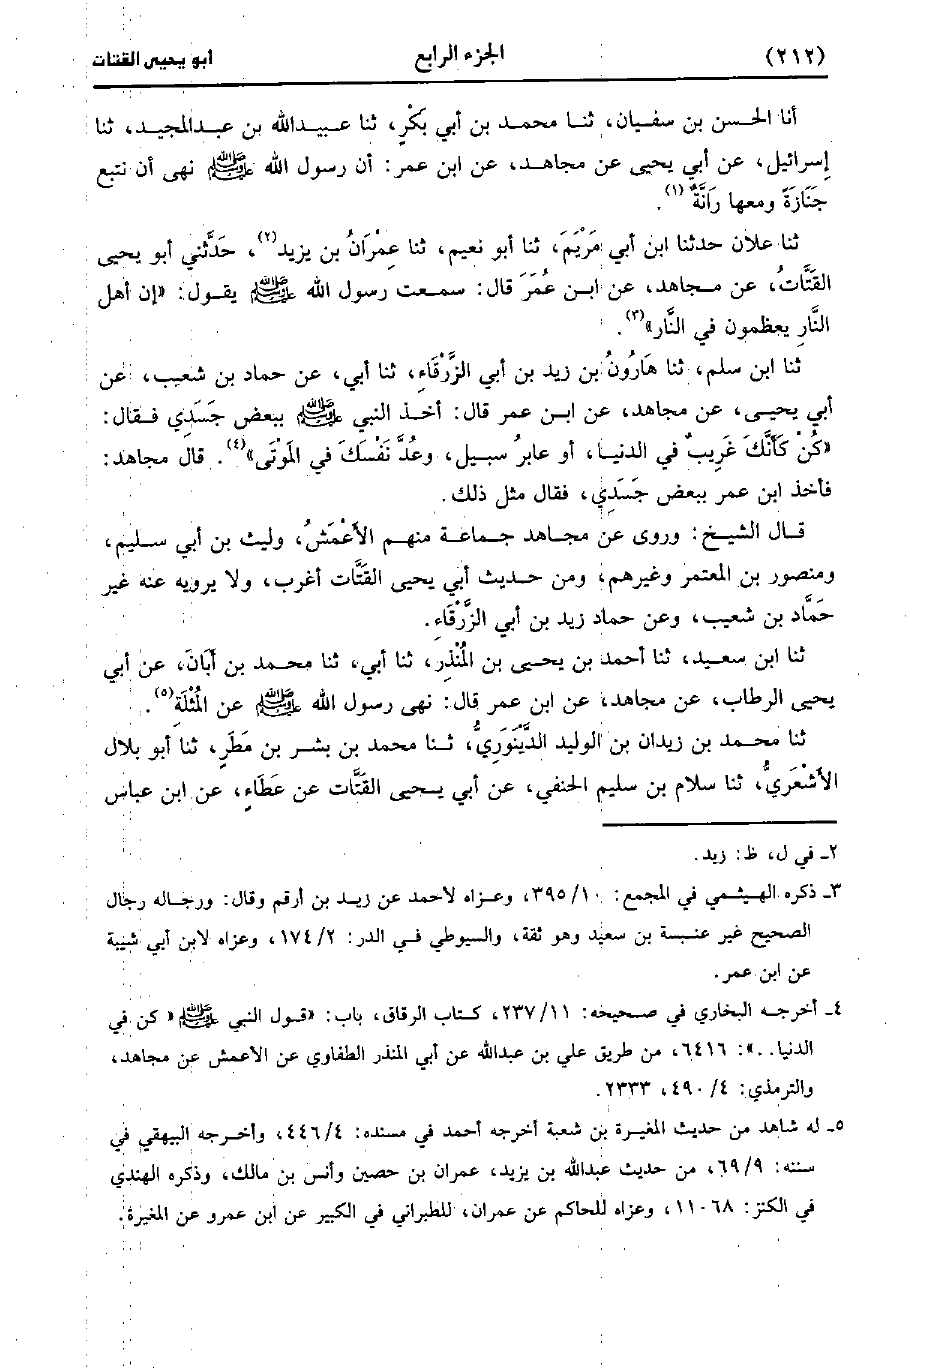 (٢١٢) الجزء الرابع أبو يحيى القتات
أنا الحسن بن سفيان، ثنا محمد بن أبي بَكْرٍ، ثنا عبيدالله بن عبدالمجيد، ثنا
إسرائيل، عن أبي يحيى عن مجاهد، عن ابن عمر: أن رسول الله ﷺ نهى أن نتبع
جَنَازَةً ومعها رَانَّةٌ(١).
ثنا علان حدثنا ابن أبي مَرْيَمَ، ثنا أبو نعيم، ثنا عِمْرَانُ بن يزيد(٢)، حَدَّثني أبو يحيى
القَتَّاتُ، عن مجاهد، عن ابن عُمَرَ قال: سمعت رسول الله ﷺ يقول: «إن أهل
النَّارِ يعظمون في النَّار»(٣).
ثنا ابن سلم، ثنا هَارُونُ بن زيد بن أبي الزَّرْقَاءِ، ثنا أبي، عن حماد بن شعيب، عن
أبي يحيى، عن مجاهد، عن ابن عمر قال: أخذ النبي ﷺ ببعض جَسَدِي فقال:
«كُنْ كَأَنَّكَ غَرِيبٌ في الدنيا، أو عابرُ سبيل، وعُدَّ نَفْسَكَ في المَوْتَى»(٤). قال مجاهد:
فأخذ ابن عمر ببعض جَسَدِي، فقال مثل ذلك.
قال الشيخ: وروى عن مجاهد جماعة منهم الأَعْمَشُ، وليث بن أبي سليم،
ومنصور بن المعتمر وغيرهم، ومن حديث أبي يحيى القَتَّات أغرب، ولا يرويه عنه غير
حَمَّاد بن شعيب، وعن حماد زيد بن أبي الزَّرْقَاءِ.
ثنا ابن سعيد، ثنا أحمد بن يحيى بن المُنْذِر، ثنا أبي، ثنا محمد بن أَبَانَ، عن أبي
يحيى الرطاب، عن مجاهد، عن ابن عمر قال: نهى رسول الله ﷺ عن المُثْلَةِ(٥).
ثنا محمد بن زيدان بن الوليد الدَّيْنَوَرِيُّ، ثنا محمد بن بشر بن مَطَرٍ، ثنا أبو بلال
الأَشْعَرِيُّ، ثنا سلام بن سليم الحنفي، عن أبي يحيى القَتَّات عن عَطَاءٍ، عن ابن عباس
٢ـ في ل، ظ: زيد.
٣ـ ذكره الهيثمي في المجمع: ٣٩٥/١٠، وعزاه لأحمد عن زيد بن أرقم وقال: ورجاله رجال
الصحيح غير عنبسة بن سعيد وهو ثقة، والسيوطي في الدر: ١٧٤/٢، وعزاه لابن أبي شيبة
عن ابن عمر.
٤ـ أخرجه البخاري في صحيحه: ٢٣٧/١١، كتاب الرقاق، باب: «قول النبي ﷺ« كن في
الدنيا..»: ٦٤١٦، من طريق علي بن عبدالله عن أبي المنذر الطفاوي عن الأعمش عن مجاهد،
والترمذي: ٤٩٠/٤، ٢٣٣٣.
٥ـ له شاهد من حديث المغيرة بن شعبة أخرجه أحمد في مسنده: ٤٤٦/٤، وأخرجه البيهقي في
سننه: ٦٩/٩، من حديث عبدالله بن يزيد، عمران بن حصين وأنس بن مالك، وذكره الهندي
في الكنز: ١١٠٦٨، وعزاه للحاكم عن عمران، للطبراني في الكبير عن ابن عمرو عن المغيرة.